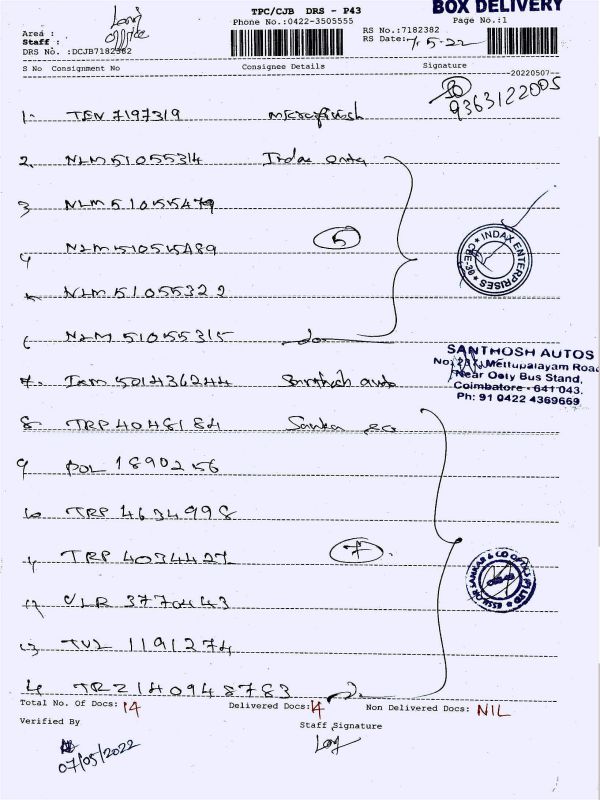 TPC/CJB DRS - P43
BOX DELIVERY
Phone No.:0422-3505555
Page No.:1
Area :
Staff : Office
DRS No. :DCJB7182382
RS No.:7182382
RS Date: 7.5.22
S No Consignment No Consignee Details Signature
--20220507--
9363122005
1. TEN 7197319
2. NLM 51055314
3 NLM 51055479
5
4 NLM 51055489
INDAX ENTERPRISES
CBE-30
NLM 51055322
6 NLM 51055315
SANTHOSH AUTOS
No: 237, Mettupalayam Road
Near Ooty Bus Stand,
Coimbatore - 641 043.
Ph: 91 0422 4369669
7. IXM 501436244 Santhosh auto
8. TRP 4048184 Sankar & co
9 POL 1890256
10 TRP 4634998
TRP 4034427
7
ESSILOR SANKAR & CO OPTICS (P) LTD
12 VLR 3770443
13 TVL 1191274
14 TRZ 140948783
Total No. Of Docs: 14 Delivered Docs: 14 Non Delivered Docs: NIL
Verified By Staff Signature
07/05/2022